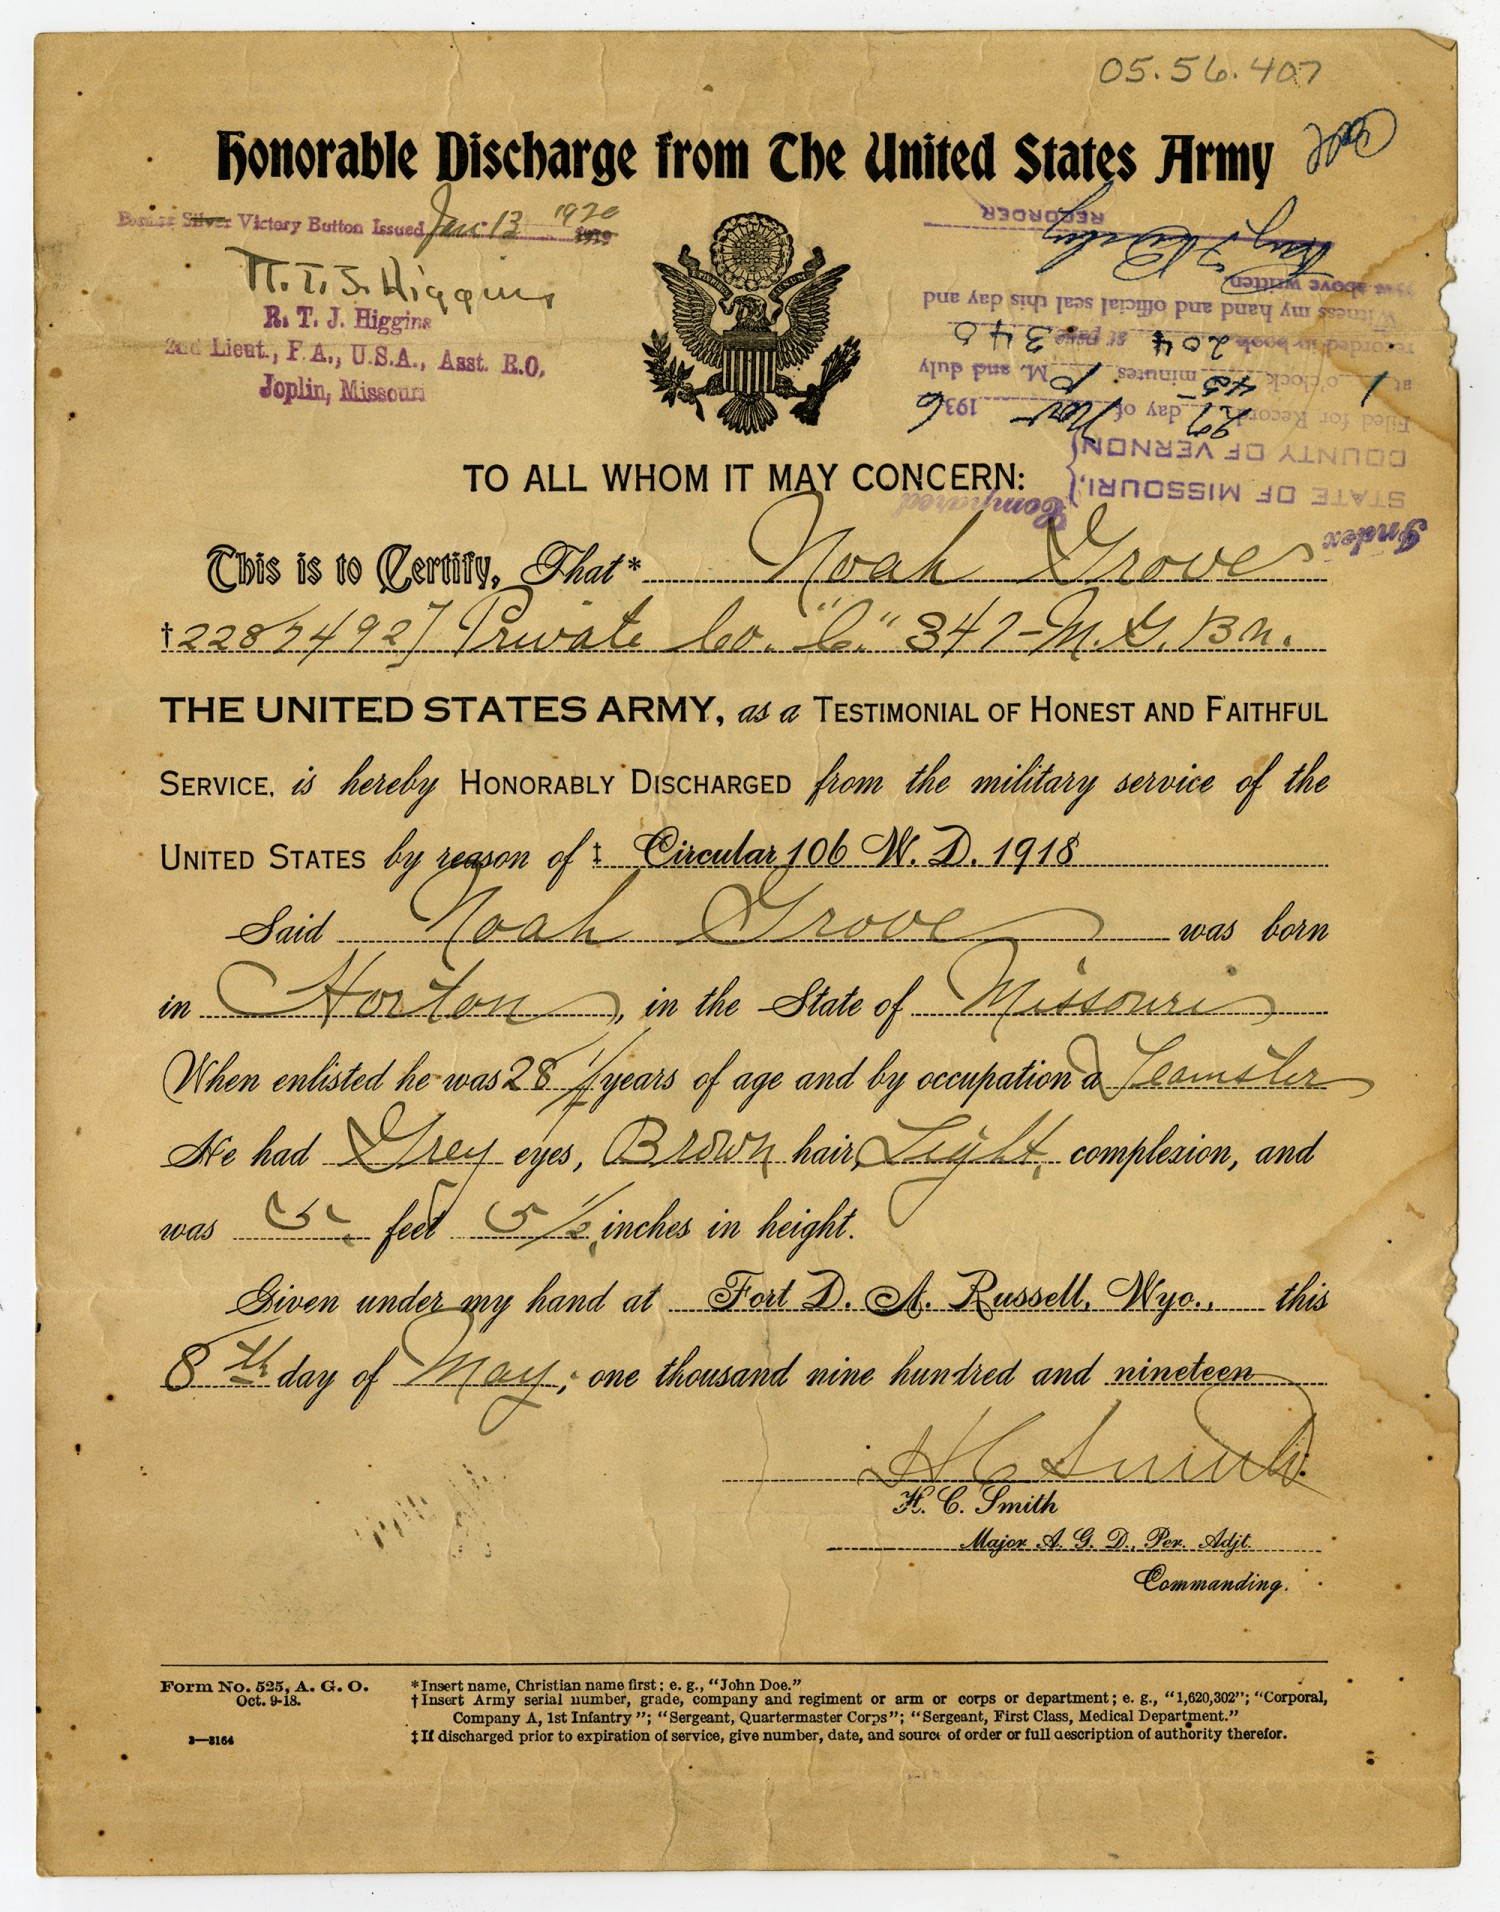 05.56.407
Honorable Discharge from The United States Army
Bronze Silver Victory Button Issued Jan. 13 1920 1919
R. T. J. Higgins
R. T. J. Higgins
2nd Lieut., F. A., U.S.A., Asst. R.O,
Joplin, Missouri
Index
Compared
STATE OF MISSOURI,
COUNTY OF VERNON
Filed for Record 27 day of Nov 1936
at 1 o'clock 45 minutes P M. and duly
recorded in book 204 at page 340
Witness my hand and official seal this day and
above written
RECORDER
TO ALL WHOM IT MAY CONCERN:
This is to Certify, That* Noah Grove
†2287492 Private Co. "C." 347-M.G. Bn.
THE UNITED STATES ARMY, as a TESTIMONIAL OF HONEST AND FAITHFUL
SERVICE, is hereby HONORABLY DISCHARGED from the military service of the
UNITED STATES by reason of ‡ Circular 106 W. D. 1918
Said Noah Grove was born
in Horton, in the State of Missouri
When enlisted he was 28 years of age and by occupation a Teamster
He had Grey eyes, Brown hair, Light complexion, and
was 5 feet 5 1/2 inches in height.
Given under my hand at Fort D. A. Russell, Wyo., this
8th day of May, one thousand nine hundred and nineteen
H C Smith
H. C. Smith
Major A. G. D., Per. Adjt.
Commanding.
Form No. 525, A. G. O.
Oct. 9-18.
3—3164
*Insert name, Christian name first; e. g., "John Doe."
†Insert Army serial number, grade, company and regiment or arm or corps or department; e. g., "1,620,302"; "Corporal,
Company A, 1st Infantry"; "Sergeant, Quartermaster Corps"; "Sergeant, First Class, Medical Department."
‡If discharged prior to expiration of service, give number, date, and source of order or full description of authority therefor.